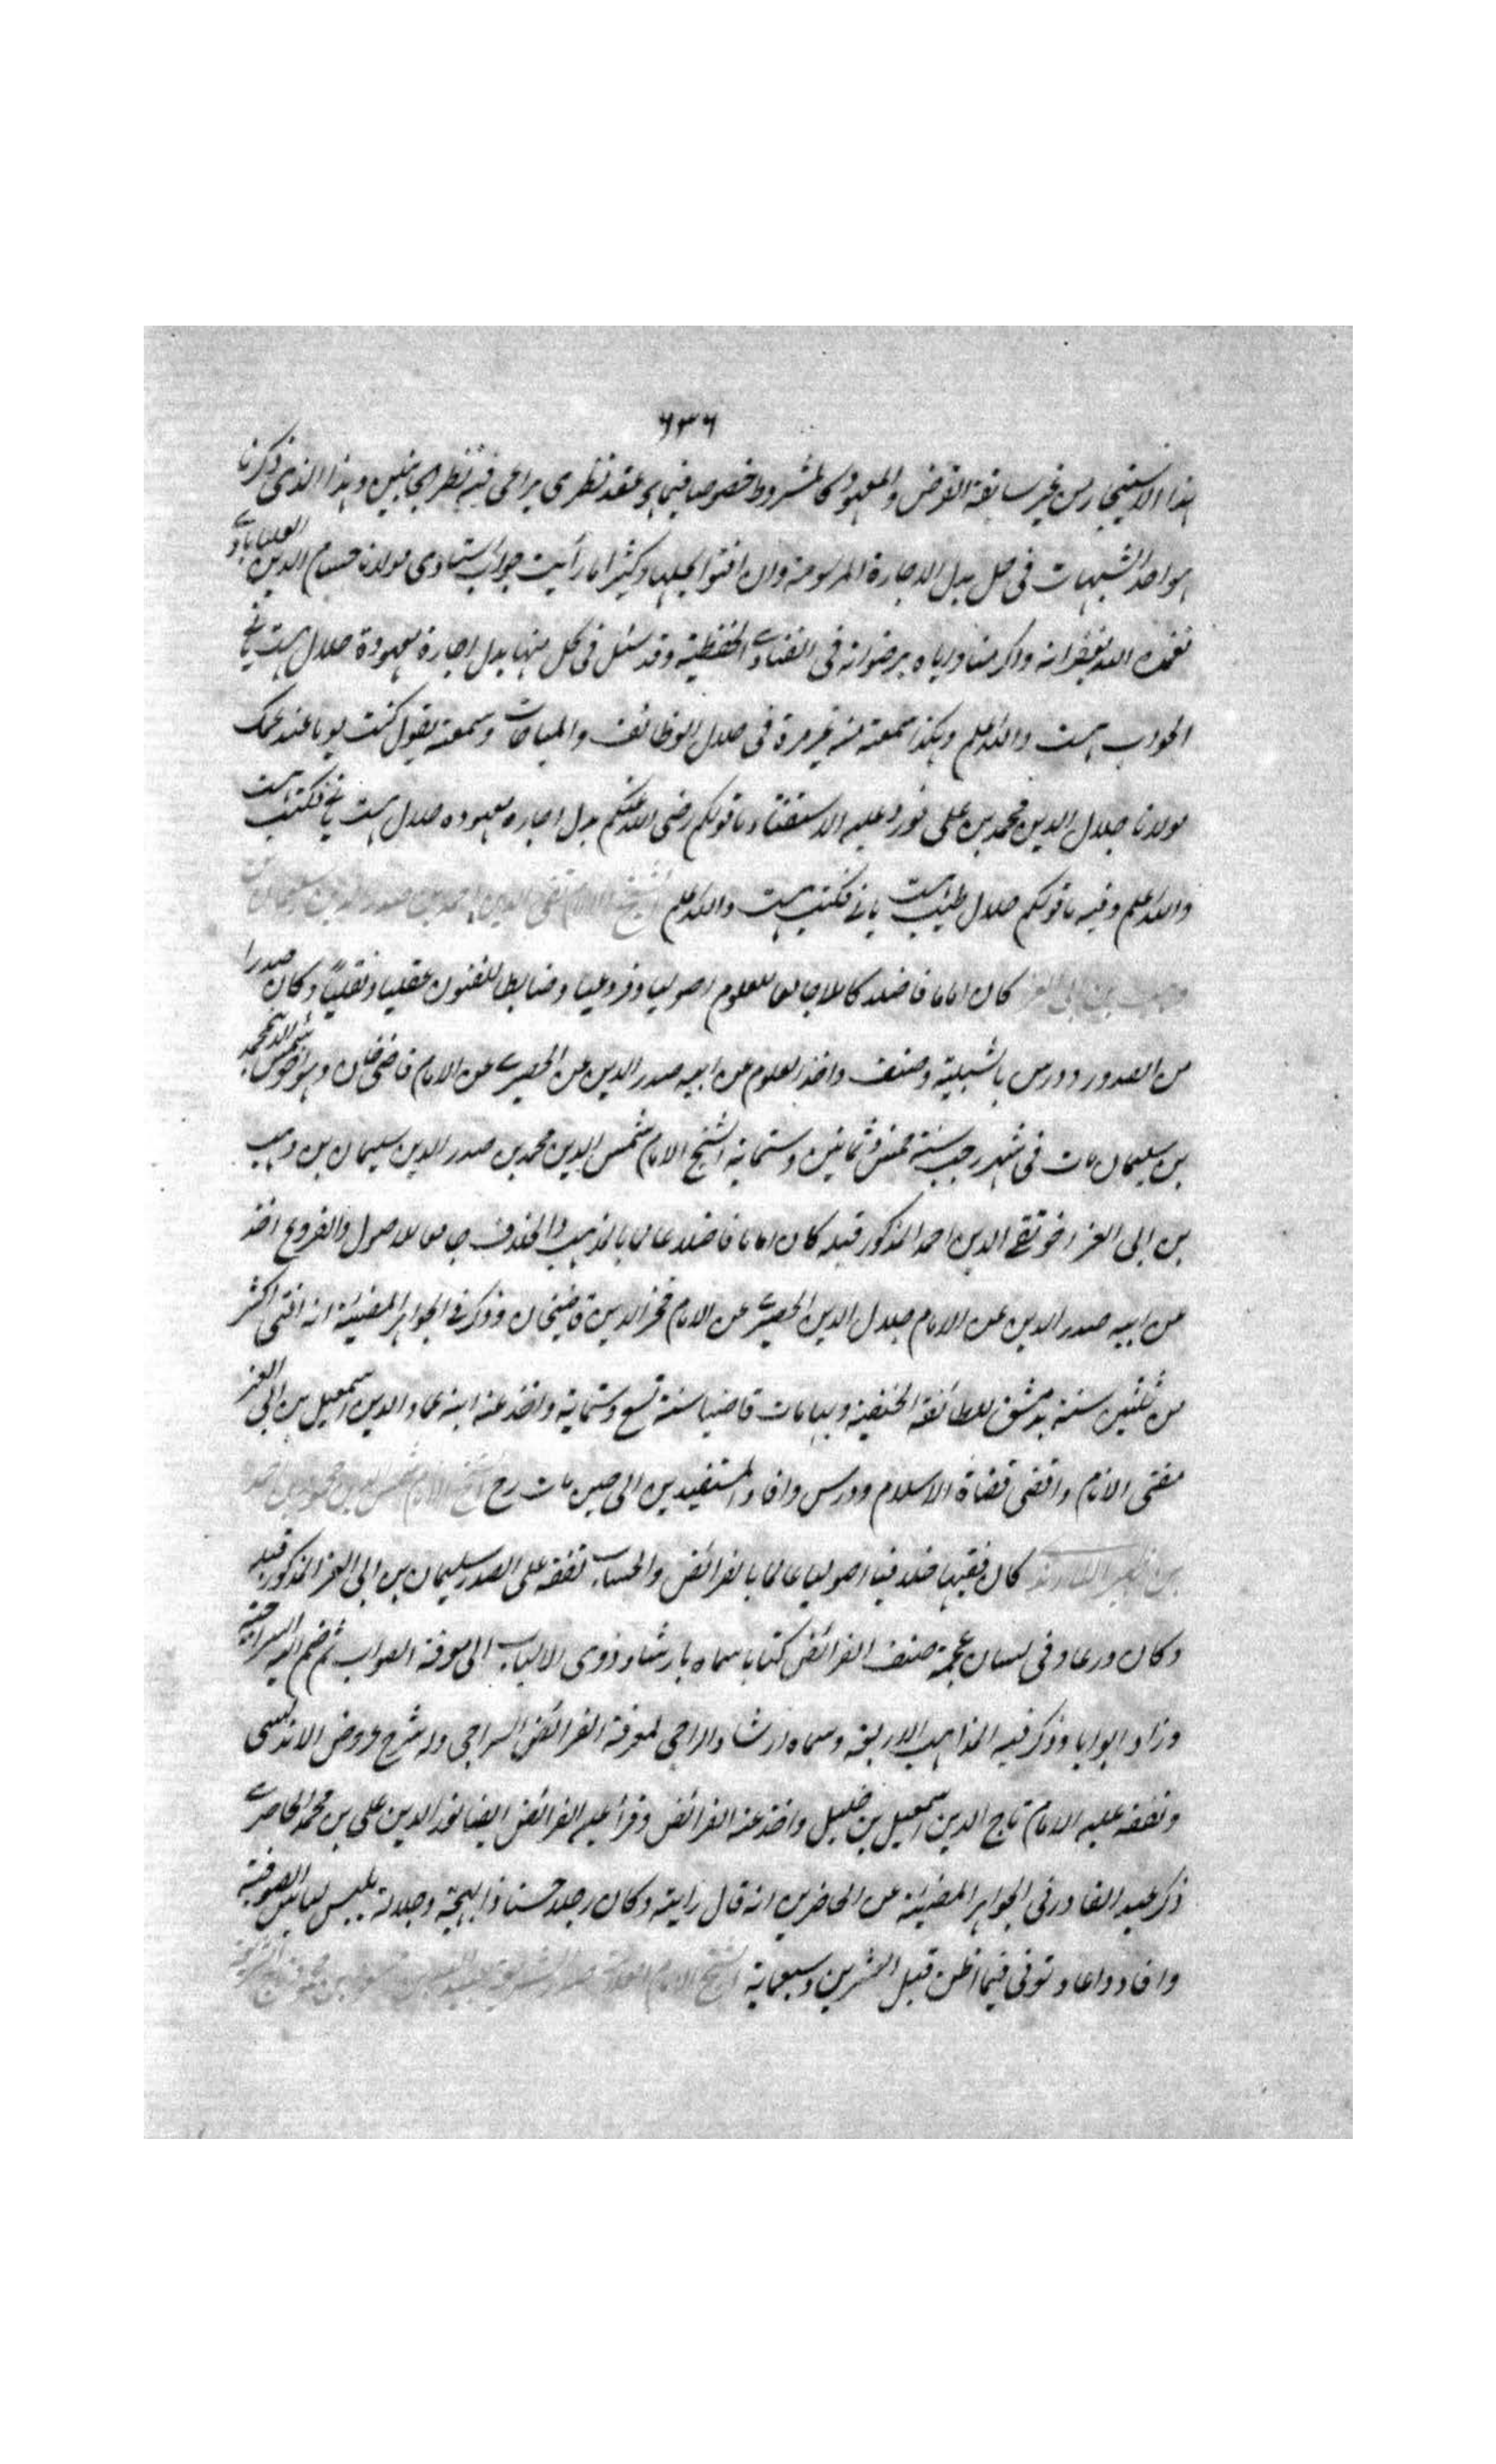 ٦٣٦
هذا الاستيجار من غير سابقة القرض والمعهود كالمشروط خصوصا فيما هو عقد نظرى يراعى فيه نظر الجانبين وهذا الذى ذكرنا
هو احد الشبهات فى حل بدل الاجارة المرسومة وان افتوا بحلها وكثيرا ما رأيت جواب استادى مولانا حسام الدين العليابادى
تغمده الله بغفرانه واكرمنا واياه برضوانه فى الفتاوى وقد سئل فى كل منها بدل اجارة معهودة حلال هست يانى
الجواب هست والله اعلم وهكذا سمعته منه غير مرة فى حلال الوظائف والمباحات وسمعته يقول كنت يوما عند عمك
مولانا جلال الدين محمد بن على فورد عليه الاستفتاء ما قولكم رضى الله عنكم بدل اجاره معهوده حلال هست يانى فكتب هست
والله اعلم وفيه ما قولكم حلال طيب هست يانى فكتب هست والله اعلم الشيخ الامام تقى الدين احمد بن صدر الدين سليمان بن
وهيب بن ابى العز كان اماما فاضلا كاملا جامعا للعلوم اصوليا وفروعيا وضابطا للفنون عقليا ونقليا وكان صدرا
من الصدور ودرس بالشبلية وصنف واخذ العلوم عن ابيه صدر الدين عن الحصيرى عن الامام قاضى خان وهو اخو شمس الدين محمد
بن سليمان مات فى شهر رجب سنة خمس وثمانين وستمائة الشيخ الامام شمس الدين محمد بن صدر الدين سليمان بن وهيب
بن ابى العز اخو تقى الدين احمد المذكور قبله كان اماما فاضلا عالما بالمذهب والخلاف جامعا للاصول والفروع اخذ
عن ابيه صدر الدين عن الامام جلال الدين الحصيرى عن الامام فخر الدين قاضيخان وذكر فى الجواهر المضيئة انه افتى اكثر
من ثلثين سنة بدمشق للطائفة الحنفية وبها مات قاضيا سنة تسع وستمائة واخذ عنه ابنه عماد الدين اسمعيل بن ابى العز
مفتى الانام واقضى قضاة الاسلام ودرس وافاد المستفيدين الى حين مات رح الشيخ الامام شمس الدين محمود بن احمد
بن ظهير اللارندى كان فقيها خلافيا اصوليا عالما بالفرائض والحساب تفقه على الصدر سليمان بن ابى العز المذكور قبله
وكان ورعا وفى لسان عجمة صنف الفرائض كتابا سماه بارشاد ذوى الالباب الى معرفة الصواب ثم ضم اليه السراجية
وزاد ابوابا وذكر فيه المذاهب الاربعة وسماه ارشاد الراجى لمعرفة الفرائض السراجى وله شرح عروض الاندلسى
وتفقه عليه الامام تاج الدين اسمعيل بن خليل واخذ عنه الفرائض وقرأ عليه الفرائض ايضا نور الدين على بن محمد الحاصرى
ذكر عبد القادر فى الجواهر المضيئة عن الحاضرين انه قال رايته وكان رجلا حسنا ذا بهجة وجلالة يلبس لباس الصوفية
وافاد واعاد وتوفى فيما اظن قبل العشرين وسبعمائة الشيخ الامام العلامة صدر الشريعة عبيد الله بن مسعود بن محمود تاج الشريعة